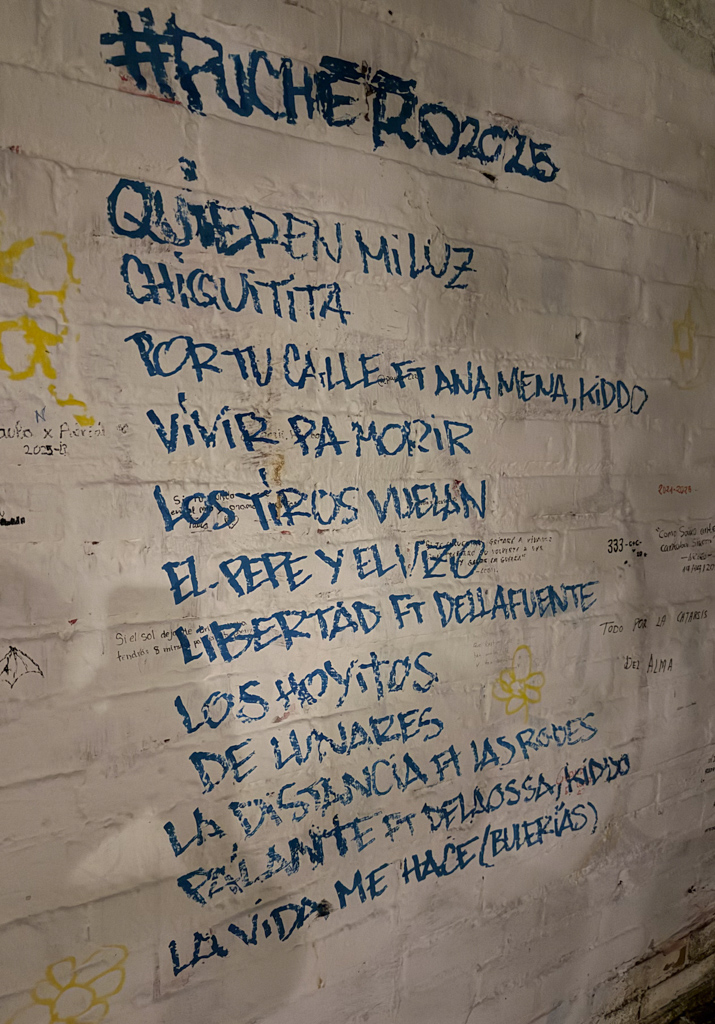 #PUCHERO2025
QUIEREN MI LUZ
CHIQUITITA
POR TU CALLE FT ANA MENA, KIDDO
VIVIR PA MORIR
LOS TIROS VUELAN
EL PEPE Y EL VIZO
LIBERTAD FT DELLAFUENTE
LOS HOYITOS
DE LUNARES
LA DISTANCIA FT LAS RODES
PA'LANTE FT DELAOSSA, KIDDO
LA VIDA ME HACE (BULERÍAS)
2023-
Si el sol
tendrás 8
333-
TODO POR LA CATARSIS
DEL ALMA
"Como Sauce